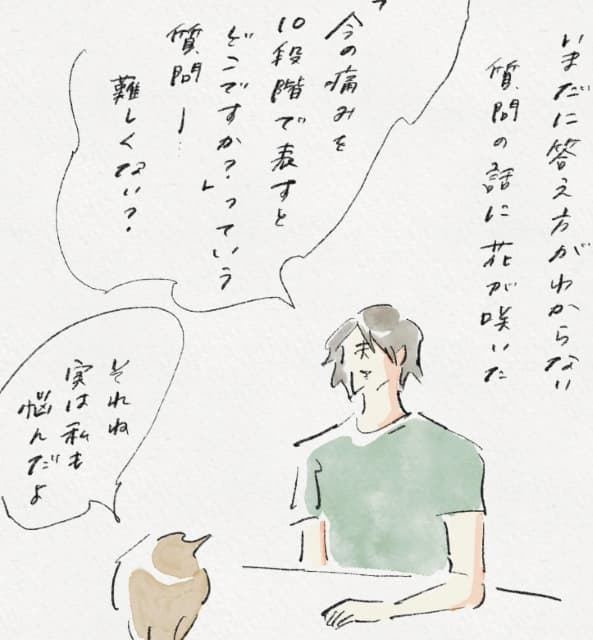 いまだに答え方がわからない
質問の話に花が咲いた
「今の痛みを
10段階で表すと
どこですか?」っていう
質問ー…
難しくない?
それね
実は私も
悩んだよ